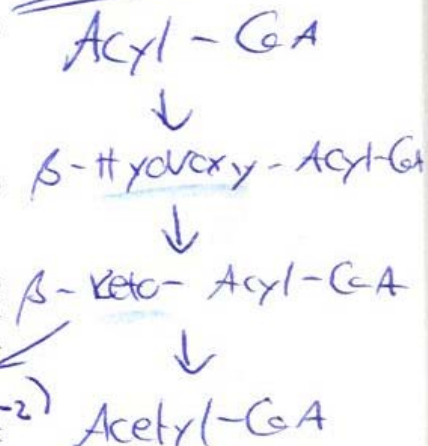 Acyl-CoA
↓
β-Hydroxy-Acyl-CoA
↓
β-Keto-Acyl-CoA
↓
-2)
Acetyl-CoA